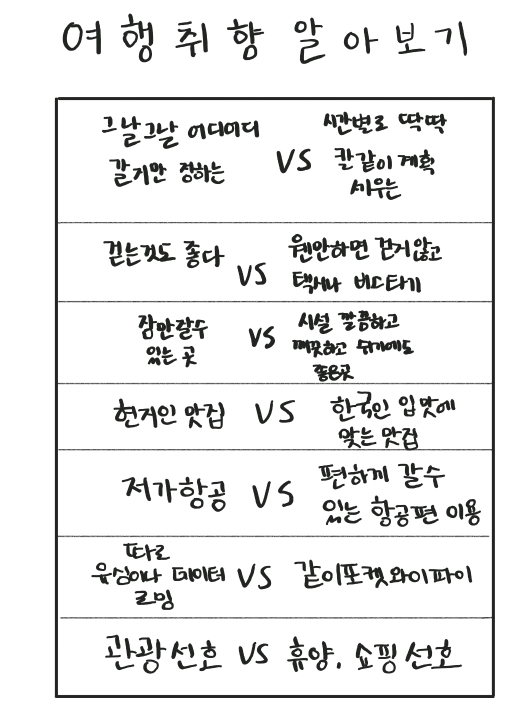 여행 취향 알아보기
그날그날 어디어디
갈지만 정하는
VS
시간별로 딱딱
칼같이 계획
세우는
걷는것도 좋다
VS
웬만하면 걷지않고
택시나 버스타기
잠만잘수
있는 곳
VS
시설 깔끔하고
깨끗하고 뷰가에도
좋은곳
현지인 맛집
VS
한국인 입맛에
맞는 맛집
저가항공
VS
편하게 갈수
있는 항공편 이용
따로
유심이나 데이터
로밍
VS
같이포켓와이파이
관광선호
VS
휴양, 쇼핑선호